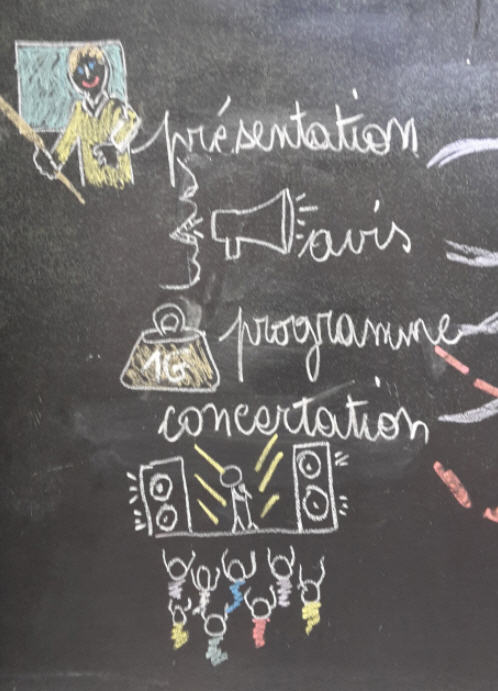 présentation
avis
1G programme
concertation